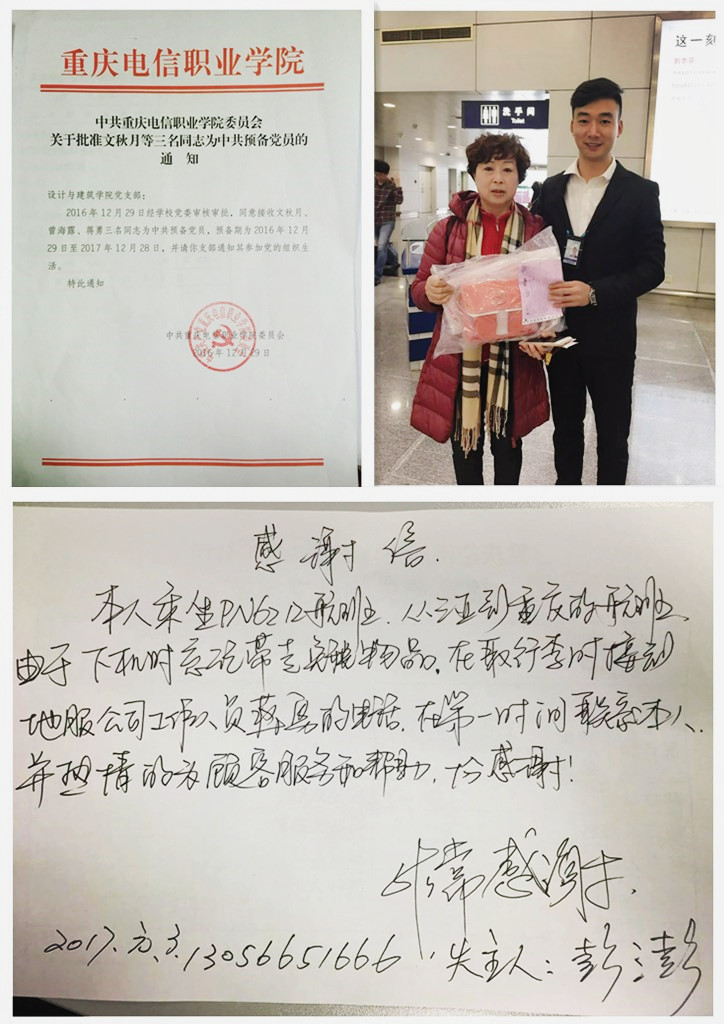 重庆电信职业学院
中共重庆电信职业学院委员会
关于批准文秋月等三名同志为中共预备党员的
通 知
设计与建筑学院党支部：
2016年12月29日经学校党委审核审批，同意接收文秋月、
曾海露、蒋勇三名同志为中共预备党员，预备期为2016年12月
29日至2017年12月28日，并请你支部通知其参加党的组织生
活。
特此通知
中共重庆电信职业学院委员会
2016年12月29日
洗手间
Toilet
这一刻
感谢信.
本人乘坐PN6212航班.从三亚到重庆的航班.
由于下机时忘记带走物品.在取行李时接到
地服公司工作人员蒋勇的电话.在第一时间联系本人.
并热情的为顾客服务和帮助,十分感谢!
非常感谢.
2017.3.13056651666
失主人:彭